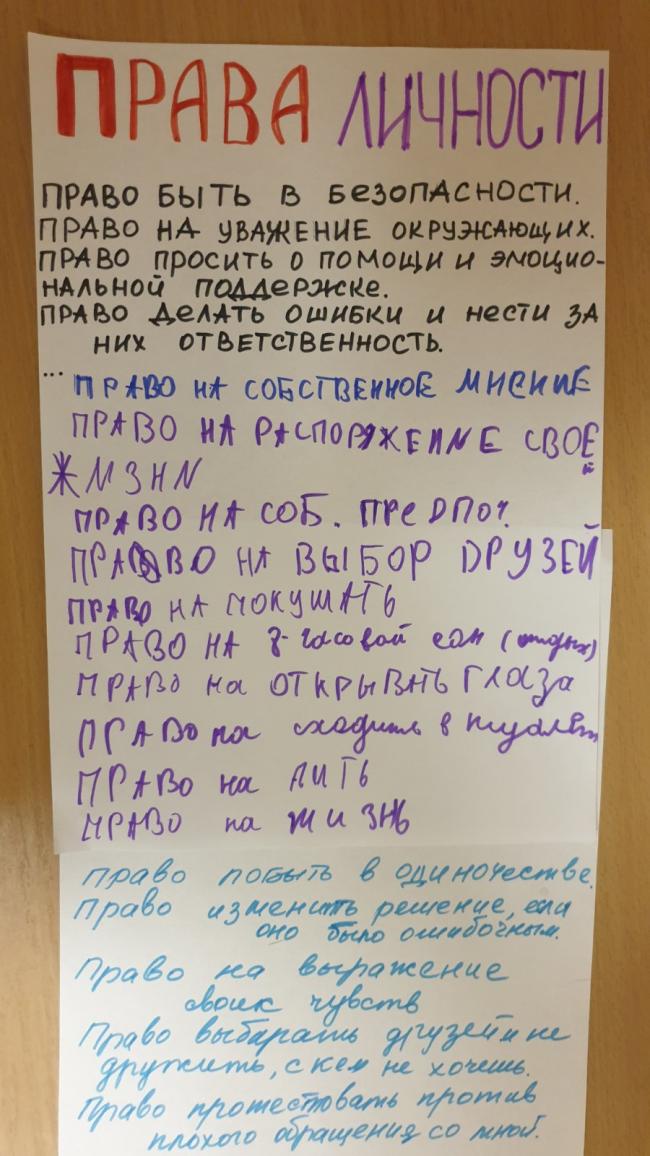 ПРАВА ЛИЧНОСТИ
ПРАВО БЫТЬ В БЕЗОПАСНОСТИ.
ПРАВО НА УВАЖЕНИЕ ОКРУЖАЮЩИХ.
ПРАВО ПРОСИТЬ О ПОМОЩИ И ЭМОЦИО-
НАЛЬНОЙ ПОДДЕРЖКЕ.
ПРАВО ДЕЛАТЬ ОШИБКИ И НЕСТИ ЗА
НИХ ОТВЕТСТВЕННОСТЬ.
... ПРАВО НА СОБСТВЕННОЕ МНЕНИЕ
ПРАВО НА РАСПОРЯЖЕНИЕ СВОЕЙ
ЖИЗНИ
ПРАВО НА СОБ. ПРЕДПОЧ.
ПРАВО НА ВЫБОР ДРУЗЕЙ
ПРАВО НА ПОКУШАТЬ
ПРАВО НА 8-часовой сон (отдых)
ПРАВО на ОТКРЫВАТЬ ГЛАЗА
ПРАВО на сходить в туалет
ПРАВО на ПИТЬ
ПРАВО на ЖИЗНЬ
Право побыть в одиночестве.
Право изменить решение, если
оно было ошибочным.
Право на выражение
своих чувств
Право выбирать друзей и не
дружить, с кем не хочешь.
Право протестовать против
плохого обращения со мной.